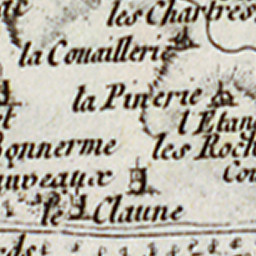 les Chartres
la Couaillerie
la Pinerie
l'Etan
Bonnerme
les Roch
uveaux
le Claune